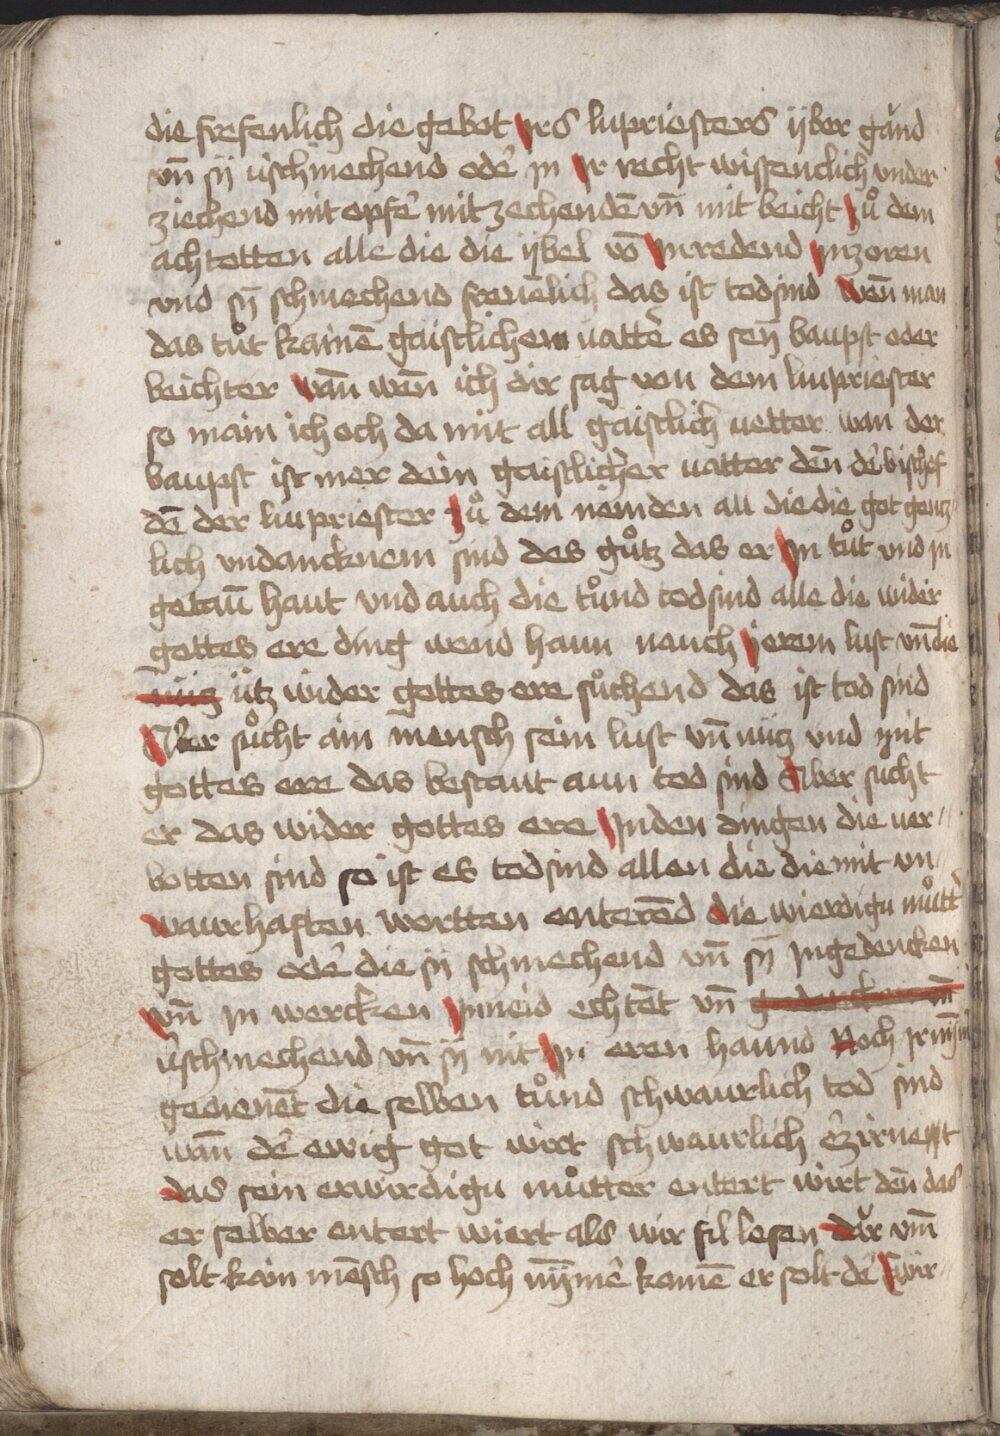 die frefenlich die gebot irs lupriesters ijber gand
vn̄ sÿ ùschmechend odē in Ir recht wissenclich vnder
ziechend mit opfē mit zechendē vn̄ mit beicht Zů dem
achtotten alle die die ijbel vō Inredend Inzoren
vnd sÿ schmechend freuēlich das ist todsind wen̄ man
das tůt kainē gaistlichem uattē es seÿ baupst oder
beichter wan̄ wen̄ ich dir sag von dem lupriester
so main ich och da mit all gaistlich uetter wan der
baupst ist mer dein gaistlicher uatter den̄ dē bischof
dē der lupriester Zů dem nèinden all die die got gentz
lich vndancknem sind des gůtz das er In tůt vnd in
getan̄ haut vnd auch die tůnd todsind alle die wider
gottes ere ding wend haun nauch ierem lust vn̄ die
nùtz ùtz wider gottes ere sůchend das ist tod sind
Aber sůcht ain mensch sein lust vn̄ nùtz vnd mit
gottes ere das bestaut aun tod sind Aber sucht
er das wider gottes ere Inden dingen die uer
botten sind so ist es todsind allen die die mit vn
waurhaften wortten enterēd die wierdigu můtt
gottes odē die sÿ schmechend vn̄ sÿ Ingedencken
vn̄ In wercken Inneid echtēt vn̄
ùschmechend vn̄ sÿ nit In eren haund Noch
gedienēt die selben tůnd schwaurlich tod sind
wan̄ dē ewig got wirt schwaurlich ērzirnett
das sein erwirdigu můtter entert wirt den̄ das
er selber entert wiert als wir fil lesen dar vm̄
solt kain mēsch so hoch nÿmē komē er solt dē wir